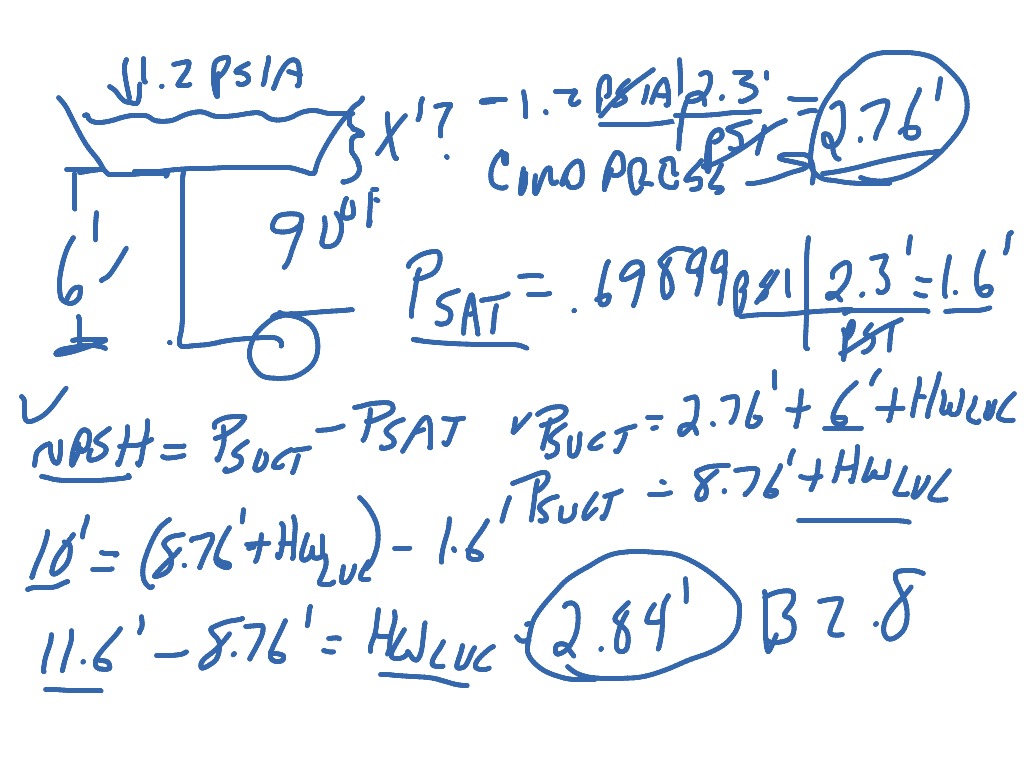 1.2 PSIA
X'? - 1.2 PSIA | 2.3' / PSI = 2.76'
COND PRESS
6'
90°F
PSAT = .69899 PSI | 2.3' / PSI = 1.6'
✓ NPSH = PSUCT - PSAT
✓ PSUCT = 2.76' + 6' + HWLVL
PSUCT = 8.76' + HWLVL
10' = (8.76' + HWLVL) - 1.6'
11.6' - 8.76' = HWLVL = 2.84' B 2.8